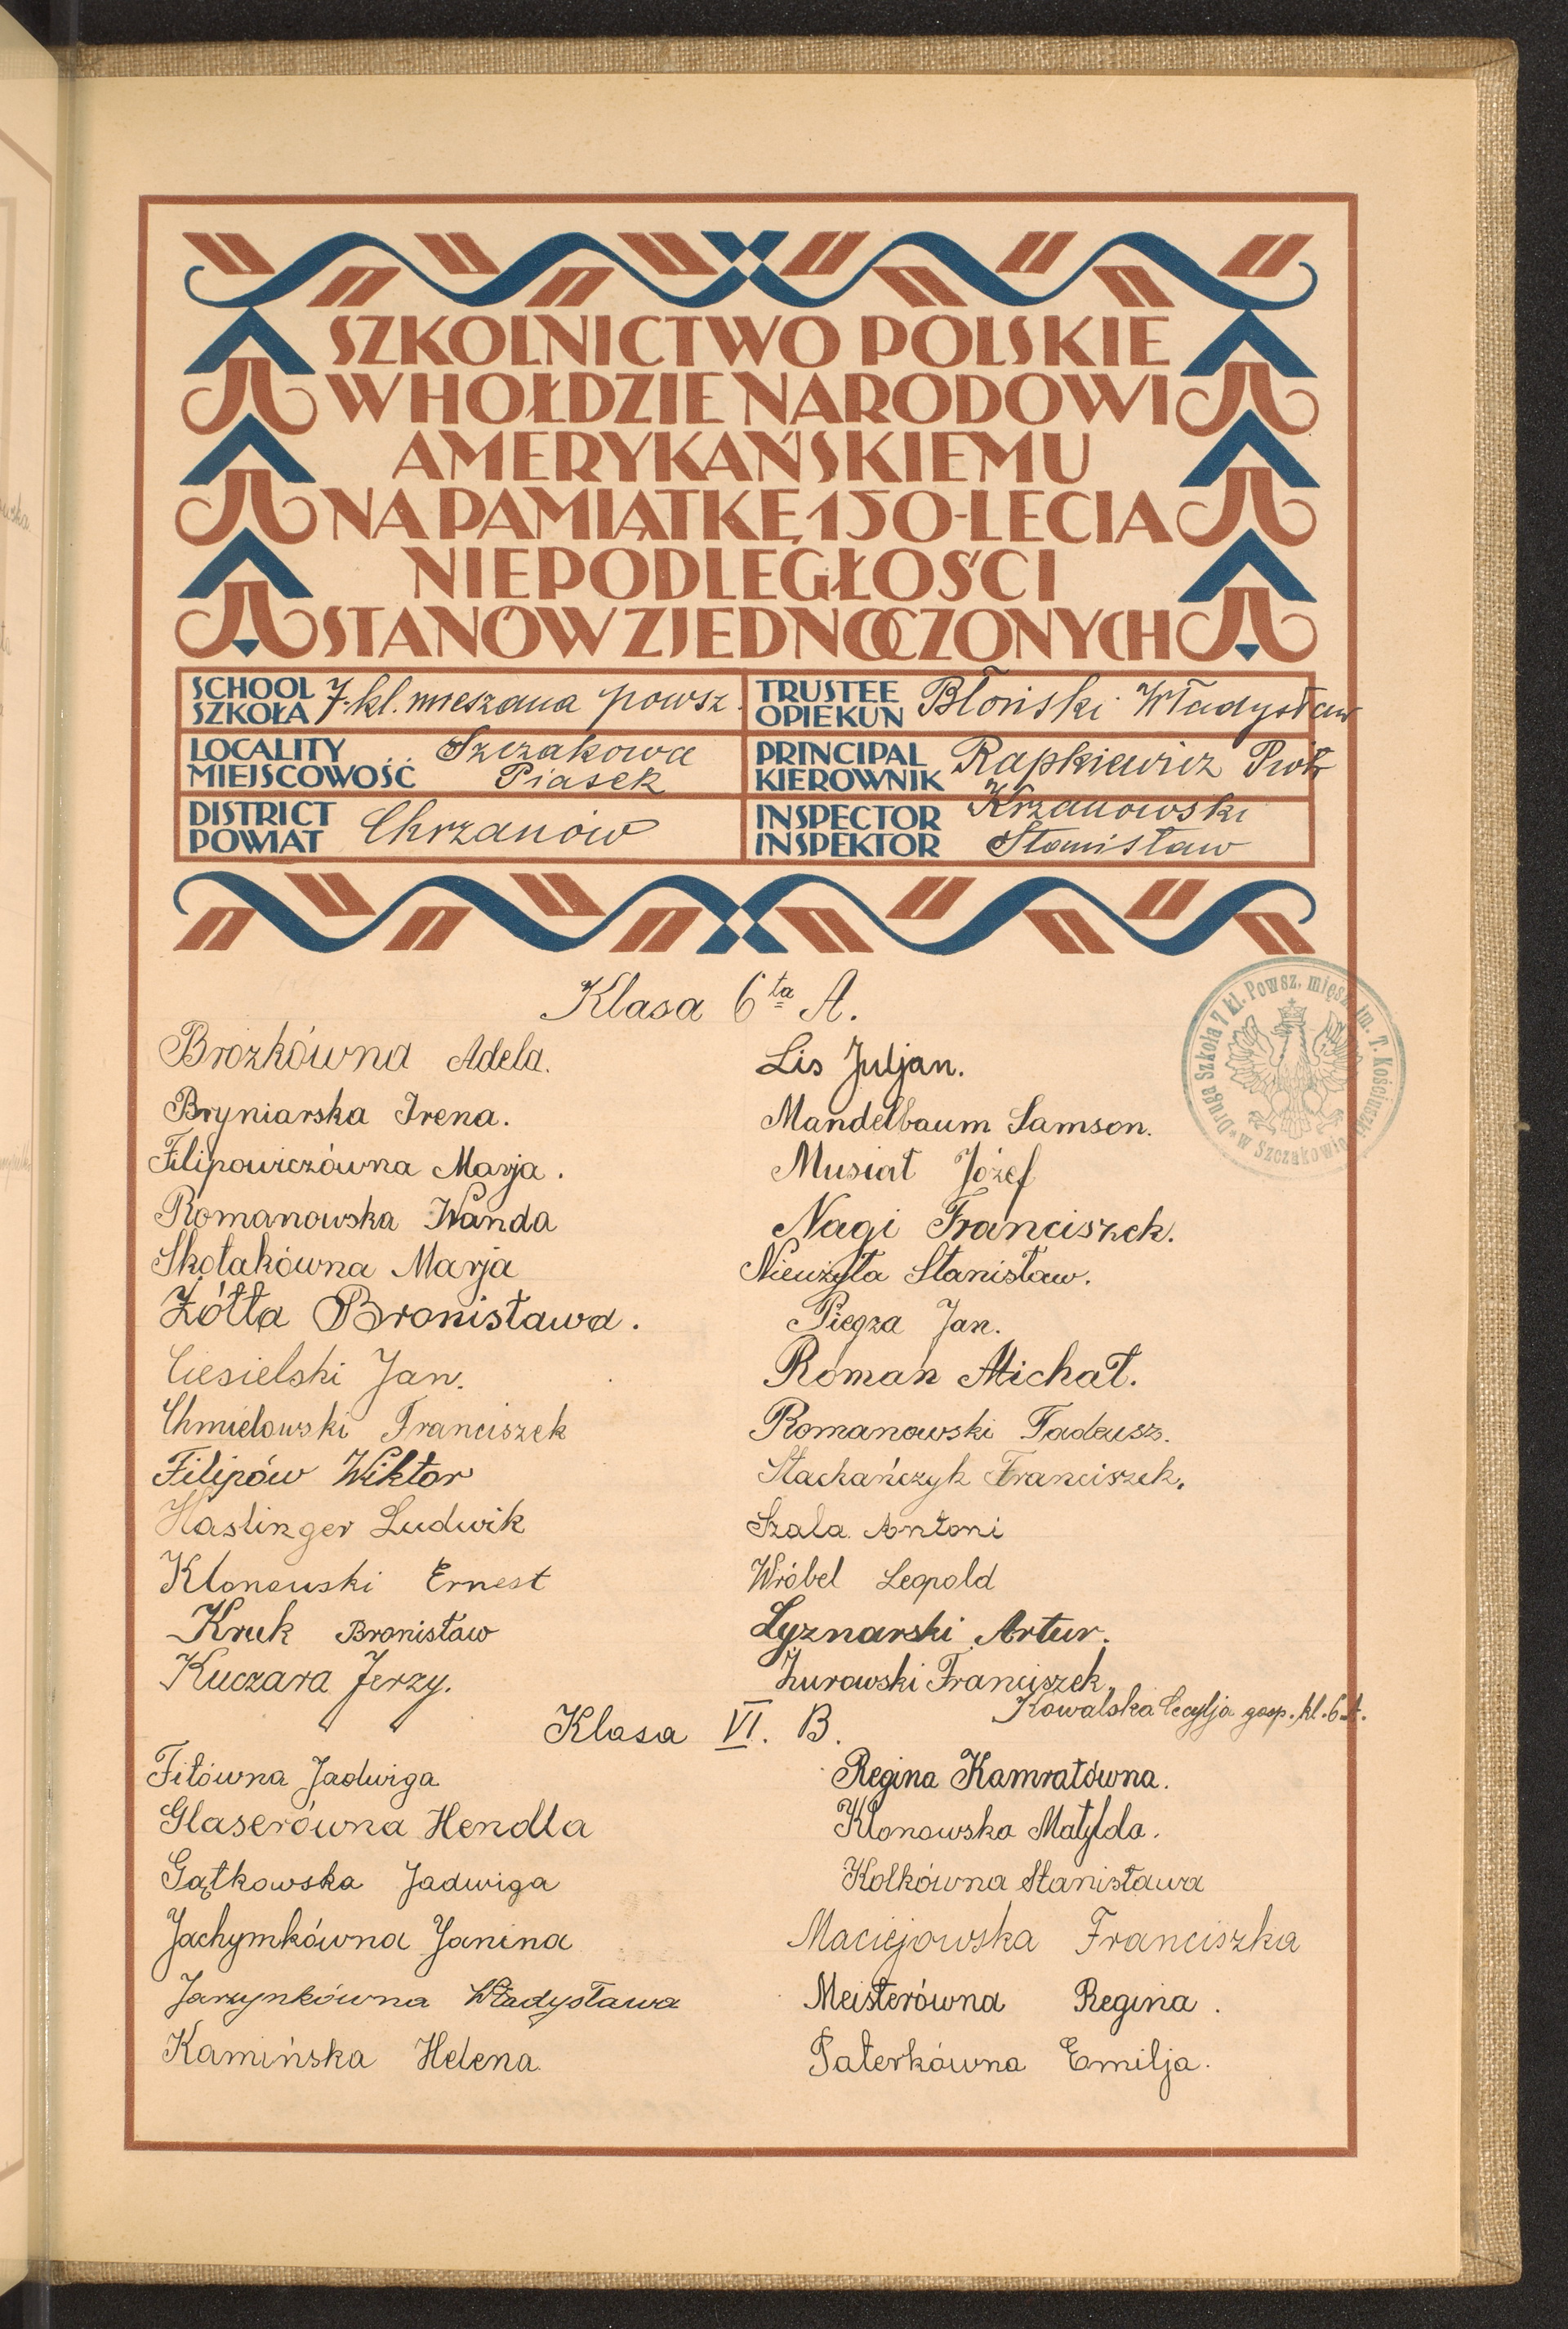 SZKOLNICTWO POLSKIE
W HOŁDZIE NARODOWI
AMERYKAŃSKIEMU
NA PAMIĄTKĘ 150-LECIA
NIEPODLEGŁOŚCI
STANÓW ZJEDNOCZONYCH
SCHOOL
SZKOŁA 7-kl. mieszana powsz.
TRUSTEE
OPIEKUN Błoński Władysław
LOCALITY
MIEJSCOWOŚĆ Szczakowa
Piasek
PRINCIPAL
KIEROWNIK Rapkiewicz Piotr
DISTRICT
POWIAT Chrzanów
INSPECTOR
INSPEKTOR Krzanowski
Stanisław
Klasa 6ta A.
Druga Szkoła 7 kl. Powsz. miesz. im. T. Kościuszki w Szczakowie
Brozkówna Adela.
Bryniarska Irena.
Filipowiczówna Marja.
Romanowska Wanda
Skołakówna Marja
Żółta Bronisława.
Ciesielski Jan.
Chmielowski Franciszek
Filipów Wiktor
Haslinger Ludwik
Klonowski Ernest
Kruk Bronisław
Kuczara Jerzy.
Lis Juljan.
Mandelbaum Samson.
Musiał Józef
Nagi Franciszek.
Nieużyła Stanisław.
Piegza Jan.
Roman Michał.
Romanowski Tadeusz.
Stachańczyk Franciszek.
Szala Antoni
Wróbel Leopold
Łyznarski Artur.
Żurowski Franciszek
Kowalska Cecylja gosp. kl. 6 A.
Klasa VI. B.
Fitówna Jadwiga
Glaserówna Hendla
Gątkowska Jadwiga
Jachymkówna Janina
Jarzynkówna Władysława
Kamińska Helena
Regina Kamratówna.
Klonowska Matylda.
Kolkówna Stanisława
Maciejowska Franciszka
Meisterówna Regina.
Paterkówna Emilja.